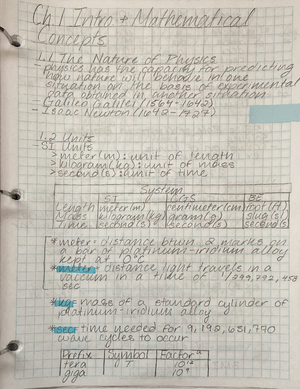 Ch. 1 Intro + Mathematical
Concepts
1.1 The Nature of Physics
- physics has the capacity for predicting
how nature will behave in one
situation on the basis of experimental
data obtained in another situation
- Galileo Galilei (1564-1642)
- Isaac Newton (1642-1727)
1.2 Units
- SI Units
> meter (m): unit of length
> kilogram (kg): unit of mass
> second (s): unit of time
System
SI CGS BE
Length meter (m) centimeter (cm) foot (ft)
Mass kilogram (kg) gram (g) slug (sl)
Time second (s) second (s) second (s)
* meter - distance btwn. 2 marks on
a bar of platinum-iridium alloy
kept at 0°C
* meter - distance light travels in a
vacuum in a time of 1/299,792,458
sec
* kg: mass of a standard cylinder of
platinum-iridium alloy
* sec: time needed for 9,192,631,770
wave cycles to occur
Prefix Symbol Factor
tera T 10¹²
giga 10⁹